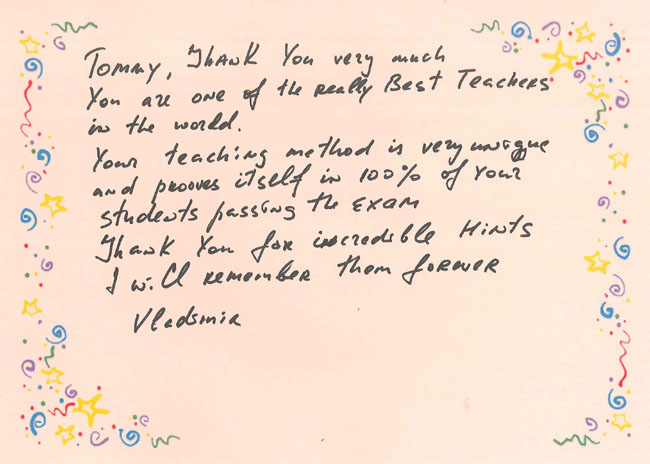 Tommy, Thank You very much
You are one of the really Best Teachers
in the world.
Your teaching method is very unique
and prooves itself in 100% of Your
students passing the exam
Thank You for incredible Hints
I will remember them forever
Vladimir